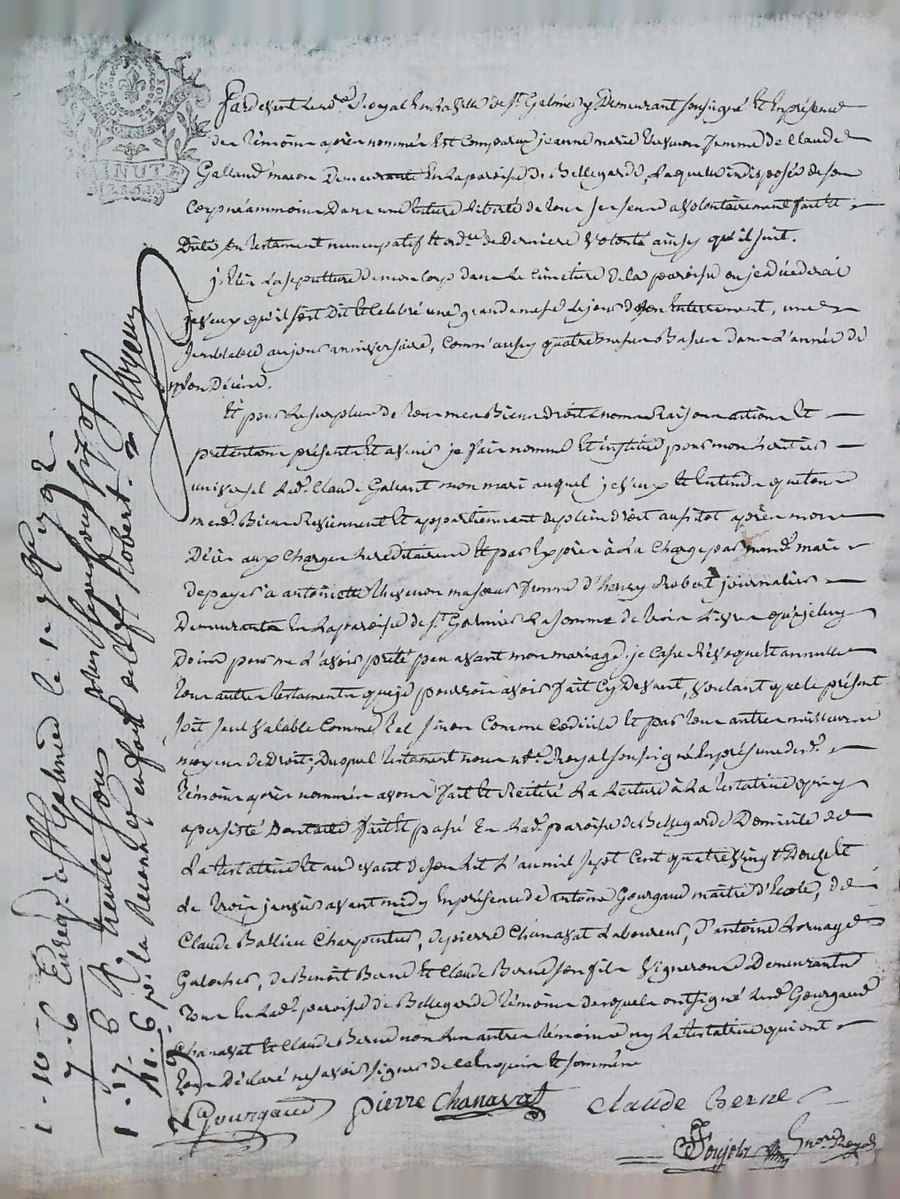 Pardevant le no.re Royal En la ville de St. Galmier y Demeurant soussigné Et En présence
des témoins après nommés Est Comparu jeanne marie thevenon femme de Claude
Galland maçon Demeurant En la paroisse de Bellegarde, Laquelle indisposée de son
Corps néammoins Dans une Entiere Liberté de tous ses sens a volontairement fait Et
Dicté son testament nuncupatif Et ord.ce de Derniere volonté ainsy qu'il suit.
j'Elis La sepulture De mon Corps dans Le Cimetiere de la paroisse ou je décéderai
je veux qu'il soit Dit Et Celebré une grande messe Le jour de mon Enterrement, une
semblable au jour anniversaire, Comm'aussy quatre messes Basses dans L'année de
mon Décès.
Et pour Le surplus de tous mes Biens Droits noms Raisons actions Et
pretentions présents Et avenir je fais nomme Et institue pour mon héritier
universel Led. Claude Galland mon mari auquel je veux Et Entends que tous
mesd. Biens Reviennent Et appartiennent de plein Droit aussitot après mon
Décès aux Charges hereditaires Et par Exprès à La Charge par mond. mari
de payer à antoinette thevenon ma sœur femme d'henry Robert journalier
Demeurants En La paroisse de St. Galmier La somme de trois Livres que je luy
Dois pour me L'avoir prêté peu avant mon mariage. je Casse Révoque Et annulle
tous autres testaments que je pourrois avoir fait Cy Devant, voulant que le présent
soit seul valable Comme tel sinon Comme Codicile Et par tous autres meilleurs
moyens de droit; Duquel testament nous no.re Royal soussigné En présence desd.
témoins après nommés avons fait Et Réitéré La Lecture à La testatrice qui y
a persisté Dont acte fait Et passé En Lad. paroisse de Bellegarde Domicile de
La testatrice Et au devant de son Lit L'an mil sept Cent quatre vingt Douze Et
Le trois janvier avant midy En présence de antoine Gourgaud maitre d'Ecole, de
Claude Ballieu Charpentier, de pierre Chanavat Laboureur, d'antoine
Galocher, de Benoît Berne Et Claude Berne son fils vignerons Demeurants
tous En Lad. paroisse de Bellegarde témoins desquels ont signé Lesd. Gourgaud
Chanavat Et Claude Berne non Les autres témoins ny La testatrice qui ont
tous Déclaré ne savoir signer de Ce Enquis Et sommés
Gourgaud Pierre Chanavat Claude Berne
no.re Royal
1 - 10 - Enreg. à St Galmier le
7 - 6
1 - 17 - 6 R. trente sept sous